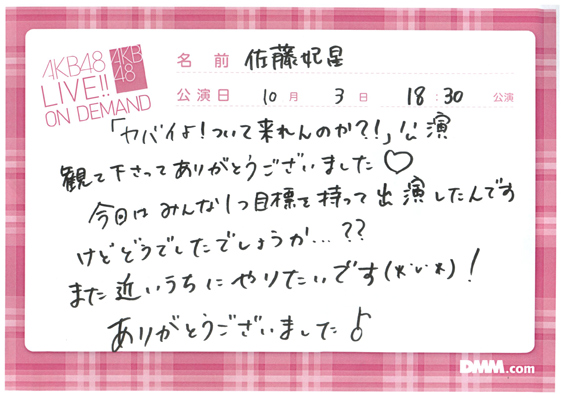 AKB48
LIVE!!
ON DEMAND
AKB
48
名前 佐藤妃星
公演日 10月 3日 18:30 公演
「ヤバイよ!ついて来れんのか?!」公演
観て下さってありがとうございました♡
今日はみんな1つ目標を持って出演したんです
けどどうでしたでしょうか…??
また近いうちにやりたいです(*˙ᵕ˙*)!
ありがとうございました♪
DMM.com